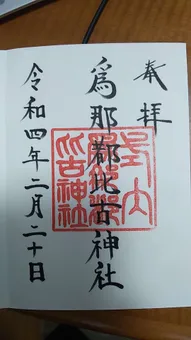 奉拝
為那都比古神社
令和四年二月二十日